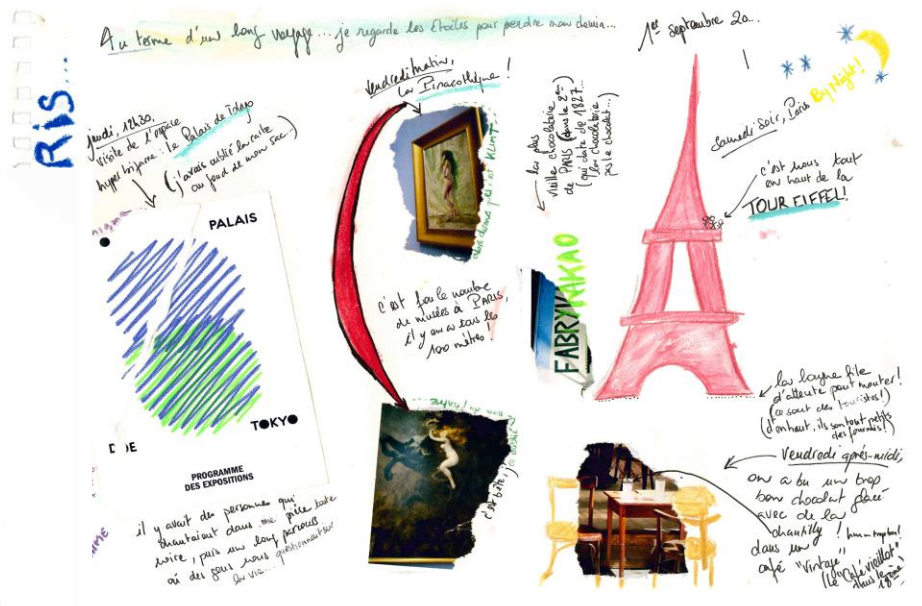 Au terme d'un long voyage... je regarde les étoiles pour perdre mon chemin...
1er septembre 20...
RIS...
jeudi, 12h30,
visite de l'espace
hyper bizarre : le Palais de Tokyo
(j'avais oublié la carte
au fond de mon sac...)
PALAIS
DE
TOKYO
PROGRAMME
DES EXPOSITIONS
il y avait des personnes qui
chantaient dans une pièce toute
noire, puis un long parcours
où des gens nous questionnent sur
la vie...
Vendredi matin,
la Pinacothèque !
KLIMT...
c'est fou le nombre
de musées à PARIS,
il y en a tous les
100 mètres !
c'est bête,
la plus
vieille chocolaterie
de PARIS (dans le 2e)
(qui date de 1827...
la chocolaterie
pas le chocolat...)
FABRYKAKAO
Samedi soir, Paris By Night !
c'est nous tout
en haut de la
TOUR EIFFEL!
la longue file
d'attente pour monter !
(ce sont des touristes !)
(d'en haut, ils sont tout petits
des fourmis !)
Vendredi après-midi,
on a bu un trop
bon chocolat glacé
avec de la
chantilly !
dans un
café "Vintage"
(le "Café vieillot"
dans le
18ème)